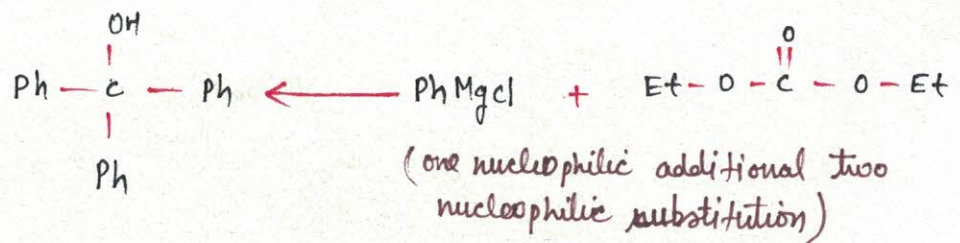 OH
O
Ph - C - Ph ← PhMgCl + Et - O - C - O - Et
Ph
(one nucleophilic additional two
nucleophilic substitution)